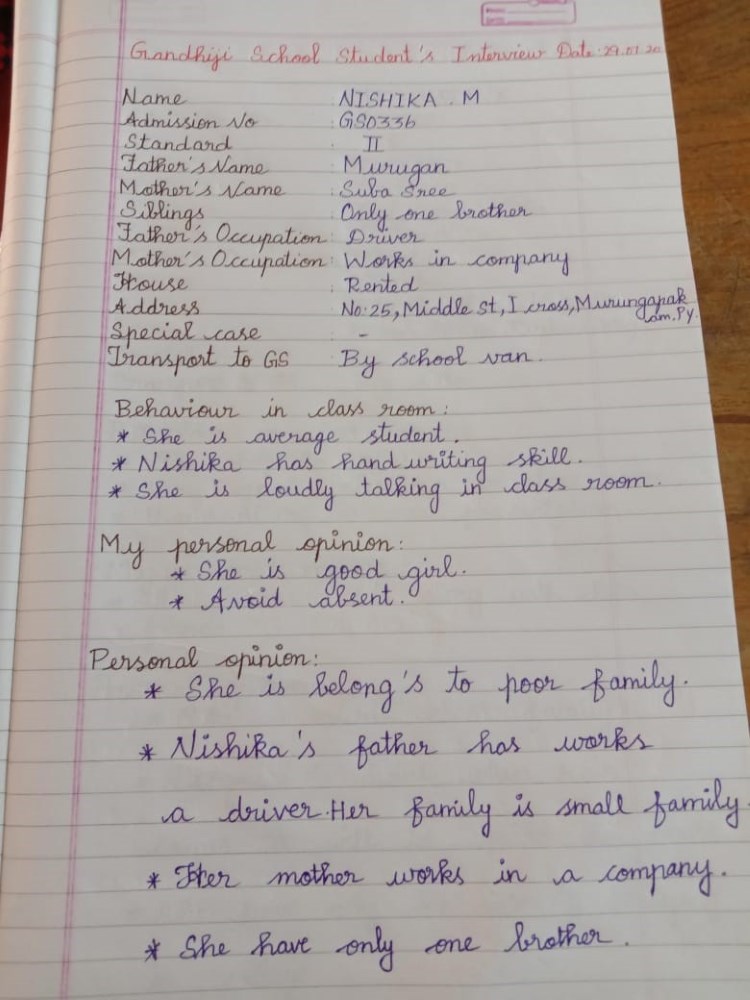 Gandhiji School Student's Interview Date: 29.01.20
Name : NISHIKA . M
Admission No : GS0336
Standard : II
Father's Name : Murugan
Mother's Name : Suba Sree
Siblings : Only one brother
Father's Occupation : Driver
Mother's Occupation : Works in company
House : Rented
Address : No: 25, Middle St, I cross, Murungapak
am. Py.
Special case : -
Transport to GS : By school van.
Behaviour in class room :
* She is average student.
* Nishika has hand writing skill.
* She is loudly talking in class room.
My personal opinion :
* She is good girl.
* Avoid absent.
Personal opinion :
* She is belong's to poor family.
* Nishika's father has works
a driver. Her family is small family
* Her mother works in a company.
* She have only one brother.